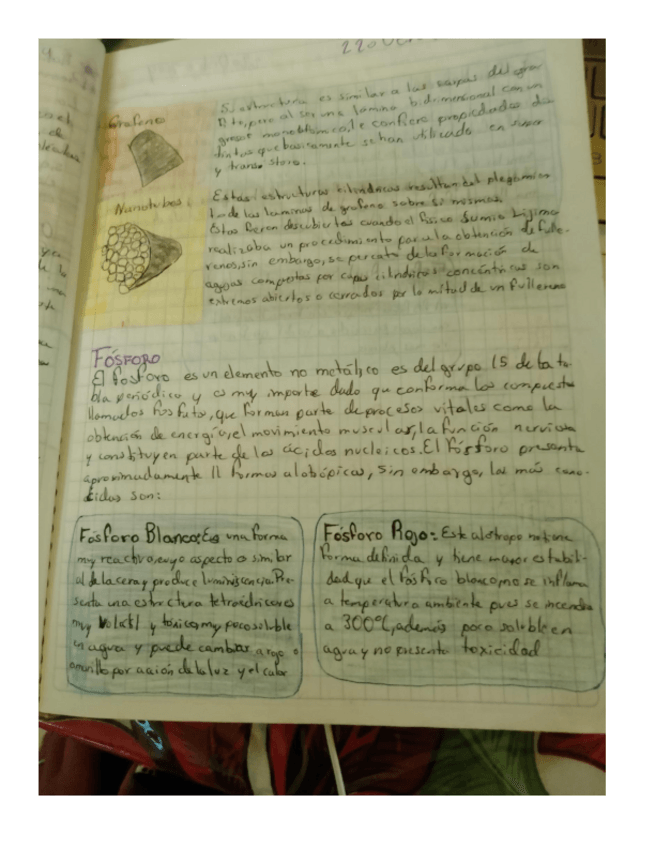 Grafeno
Su estructura es similar a las capas del gra
fito, pero al ser una lámina bidimensional con un
grosor monoatómico, le confiere propiedades dis
tintas que basicamente se han utilizado en
y
Nanotubos
Estas estructuras cilíndricas resultan del plegamien
to de las laminas de grafeno sobre si mismas,
Estos fueron descubiertos cuando el fisico Sumio Iijima
realizaba un procedimiento para la obtención de fulle-
renos, sin embargo, se percato de la formación de
agujas compuestas por capas cilindricas concéntricas con
extremos abiertos o cerrados por la mitad de un fullereno
FÓSFORO
El fosforo es un elemento no metálico es del grupo 15 de la ta
bla periódica y es muy importe dado que conforma los compuestos
llamados fosfatos, que forman parte de procesos vitales como la
obtención de energía, el movimiento muscular, la función nerviosa
y constituyen parte de los ácidos nucleicos. El fósforo presenta
aproximadamente 11 formas alotrópicas, sin embargo, las más cono-
cidas son:
Fósforo Blanco: Es una forma
muy reactiva, cuyo aspecto es similar
al de la cera y produce luminiscencia. Pre-
senta una estructura tetraédrica, es
muy volatil y tóxico, muy poco soluble
en agua y puede cambiar a rojo o
amarillo por acción de la luz y el calor
Fósforo Rojo: Este alotropo no tiene
forma definida y tiene mayor estabili-
dad que el fósforo blanco, no se inflama
a temperatura ambiente pues se incendia
a 300°C, además poco soluble en
agua y no presenta toxicidad